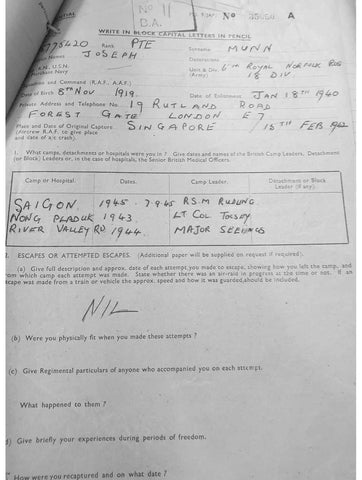 No 11
B.A.
No A
WRITE IN BLOCK CAPITAL LETTERS IN PENCIL
Rank PTE Surname MUNN
Names JOSEPH Decorations
R.N. U.S.N. Unit & Div 6TH ROYAL NORFOLK REG
Merchant Navy (Army) 18 DIV
and Command (R.A.F. A.A.F.)
Date of Birth 8TH NOV 1919. Date of Enlistment JAN 18TH 1940
Private Address and Telephone No. 19 RUTLAND ROAD
FOREST GATE LONDON E 7
Place and Date of Original Capture SINGAPORE 15TH FEB 1942
(Aircrew R.A.F. to give place
and date of a/c crash).
1. What camps, detachments or hospitals were you in? Give dates and names of the British Camp Leaders, Detachment
(or Block) Leaders or, in the case of hospitals, the Senior British Medical Officers.
Camp or Hospital. Dates. Camp Leader. Detachment or Block
Leader (if any).
SAIGON. 1945 R.S.M
NONG PLADUK 1943 LT COL TOOSEY
RIVER VALLEY RD 1944. MAJOR
ESCAPES OR ATTEMPTED ESCAPES. (Additional paper will be supplied on request if required).
(a) Give full description and approx. date of each attempt you made to escape, showing how you left the camp, and
from which camp each attempt was made. State whether there was an air-raid in progress at the time or not. If an
escape was made from a train or vehicle the approx. speed and how it was guarded, should be included.
NIL
(b) Were you physically fit when you made these attempts?
(c) Give Regimental particulars of anyone who accompanied you on each attempt.
What happened to them?
d) Give briefly your experiences during periods of freedom.
How were you recaptured and on what date?